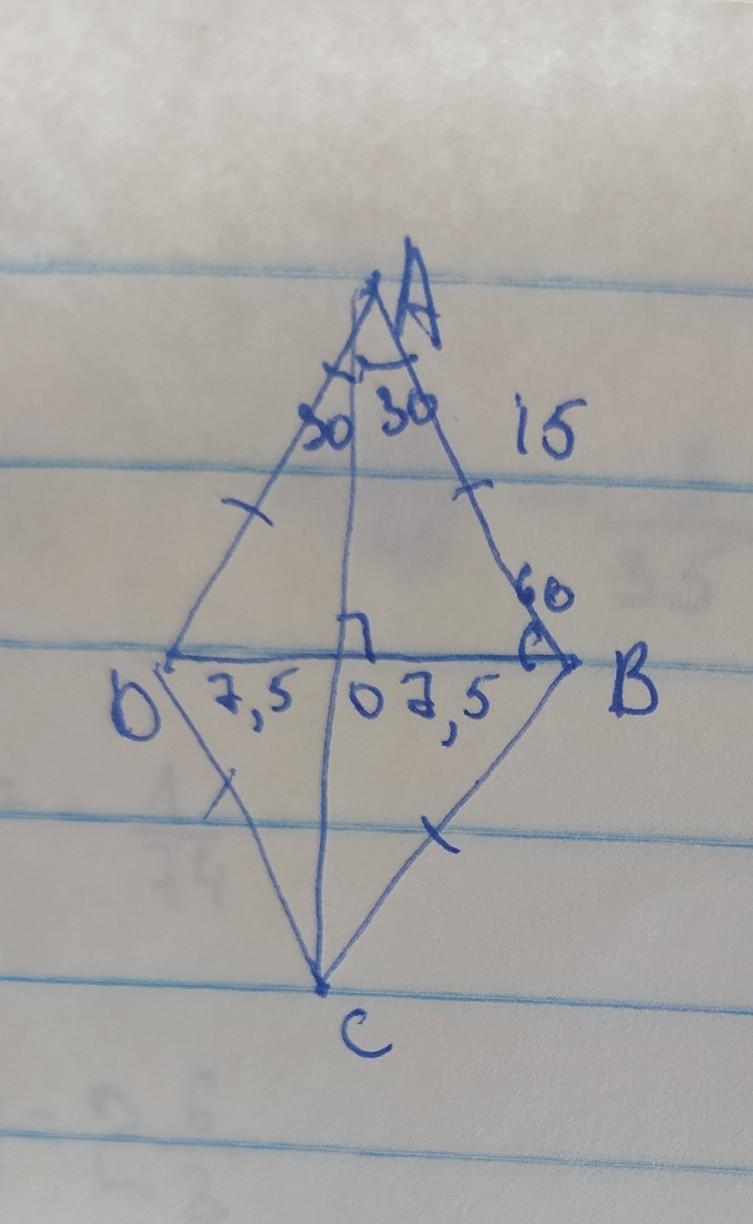 A
30 30 15
60
D 7,5 O 7,5 B
C